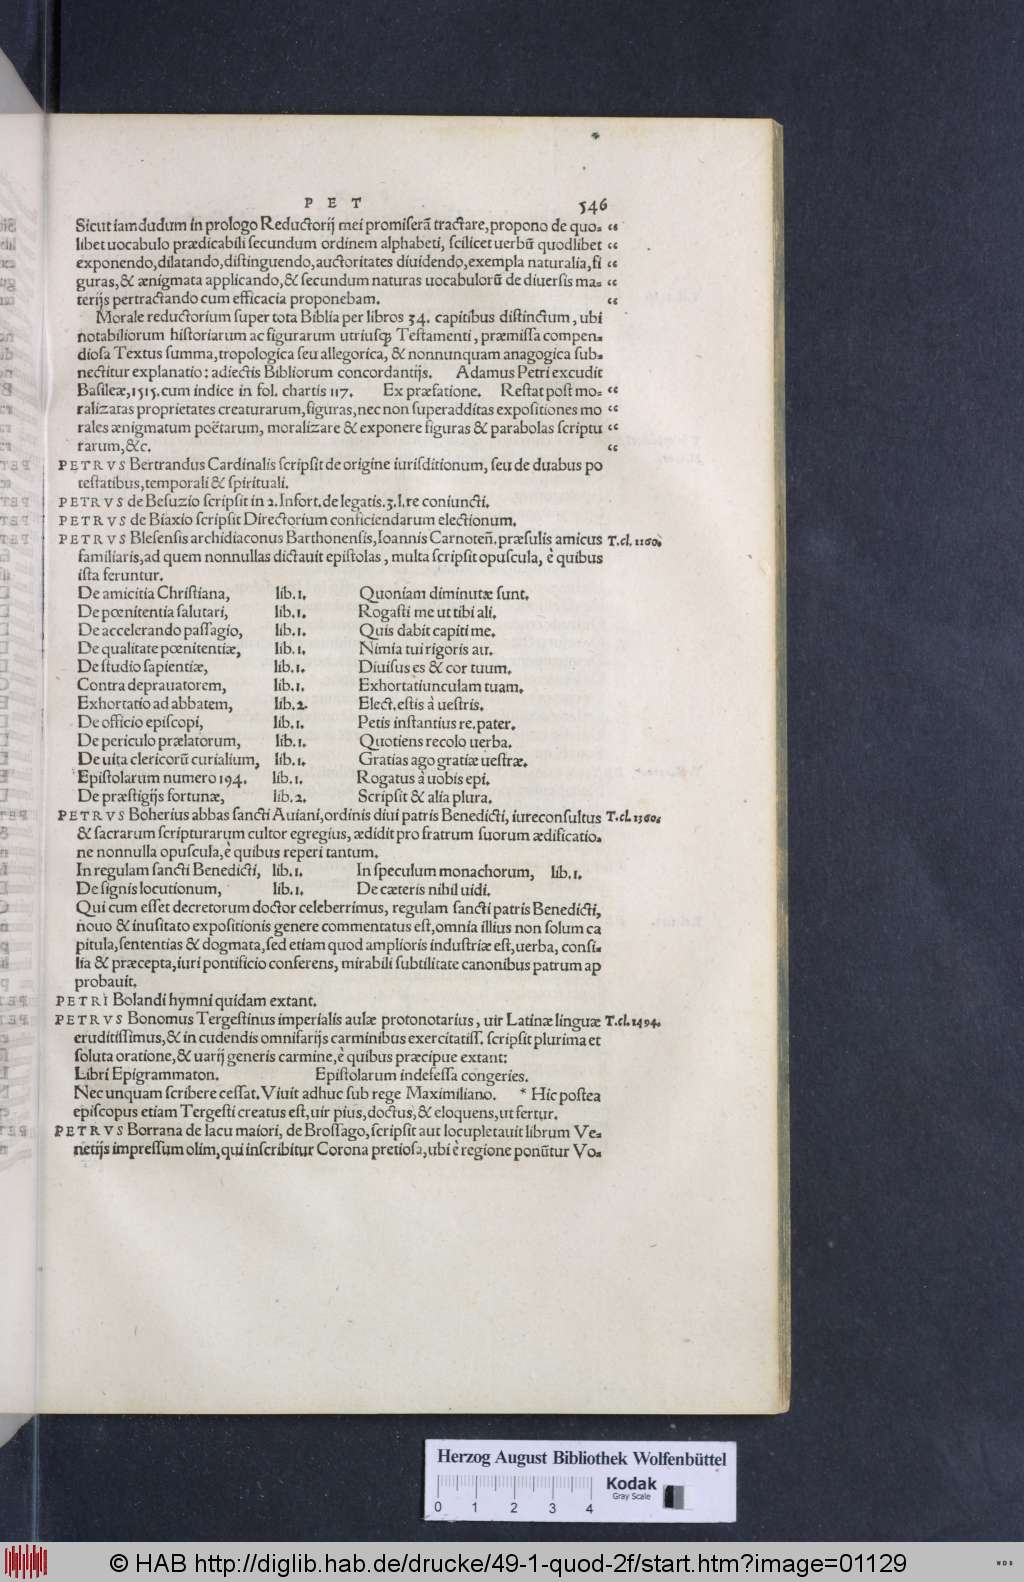 P E T 546
Sicut iamdudum in prologo Reductorij mei promiserã tractare, propono de quo= “
libet uocabulo prædicabili secundum ordinem alphabeti, scilicet uerbũ quodlibet “
exponendo, dilatando, distinguendo, auctoritates diuidendo, exempla naturalia, fi “
guras, & ænigmata applicando, & secundum naturas uocabulorũ de diuersis ma= “
terijs pertractando cum efficacia proponebam. “
Morale reductorium super tota Biblia per libros 34. capitibus distinctum, ubi
notabiliorum historiarum ac figurarum utriusq; Testamenti, præmissa compen=
diosa Textus summa, tropologica seu allegorica, & nonnunquam anagogica sub=
nectitur explanatio: adiectis Bibliorum concordantijs. Adamus Petri excudit
Basileæ, 1515. cum indice in fol. chartis 117. Ex præfatione. Restat post mo= “
ralizatas proprietates creaturarum, figuras, nec non superadditas expositiones mo “
rales ænigmatum poëtarum, moralizare & exponere figuras & parabolas scriptu “
rarum, &c. “
PETRVS Bertrandus Cardinalis scripsit de origine iurisditionum, seu de duabus po
testatibus, temporali & spirituali.
PETRVS de Besuzio scripsit in 2. Infort. de legatis. 3. l. re coniuncti.
PETRVS de Biaxio scripsit Directorium conficiendarum electionum.
PETRVS Blesensis archidiaconus Barthonensis, Ioannis Carnoteñ. præsulis amicus T. cl. 1160.
familiaris, ad quem nonnullas dictauit epistolas, multa scripsit opuscula, è quibus
ista feruntur.
De amicitia Christiana, lib. 1. Quoniam diminutæ sunt.
De pœnitentia salutari, lib. 1. Rogasti me ut tibi ali.
De accelerando passagio, lib. 1. Quis dabit capiti me.
De qualitate pœnitentiæ, lib. 1. Nimia tui rigoris au.
De studio sapientiæ, lib. 1. Diuisus es & cor tuum.
Contra deprauatorem, lib. 1. Exhortatiunculam tuam.
Exhortatio ad abbatem, lib. 2. Elect. estis à uestris.
De officio episcopi, lib. 1. Petis instantius re. pater.
De periculo prælatorum, lib. 1. Quotiens recolo uerba.
De uita clericorũ curialium, lib. 1. Gratias ago gratiæ uestræ.
Epistolarum numero 194. lib. 1. Rogatus à uobis epi.
De præstigijs fortunæ, lib. 2. Scripsit & alia plura.
PETRVS Boherius abbas sancti Auiani, ordinis diui patris Benedicti, iureconsultus T. cl. 1360.
& sacrarum scripturarum cultor egregius, ædidit pro fratrum suorum ædificatio=
ne nonnulla opuscula, è quibus reperi tantum.
In regulam sancti Benedicti, lib. 1. In speculum monachorum, lib. 1.
De signis locutionum, lib. 1. De cæteris nihil uidi.
Qui cum esset decretorum doctor celeberrimus, regulam sancti patris Benedicti,
nouo & inusitato expositionis genere commentatus est, omnia illius non solum ca
pitula, sententias & dogmata, sed etiam quod amplioris industriæ est, uerba, consi=
lia & præcepta, iuri pontificio conferens, mirabili subtilitate canonibus patrum ap
probauit.
PETRI Bolandi hymni quidam extant.
PETRVS Bonomus Tergestinus imperialis aulæ protonotarius, uir Latinæ linguæ T. cl. 1494.
eruditissimus, & in cudendis omnifarijs carminibus exercitatiss. scripsit plurima et
soluta oratione, & uarij generis carmine, è quibus præcipue extant:
Libri Epigrammaton. Epistolarum indefessa congeries.
Nec unquam scribere cessat. Viuit adhuc sub rege Maximiliano. * Hic postea
episcopus etiam Tergesti creatus est, uir pius, doctus, & eloquens, ut fertur.
PETRVS Borrana de lacu maiori, de Brossago, scripsit aut locupletauit librum Ve=
netijs impressum olim, qui inscribitur Corona pretiosa, ubi è regione ponũtur Vo=
Herzog August Bibliothek Wolfenbüttel
Kodak
Gray Scale
0 1 2 3 4
© HAB http://diglib.hab.de/drucke/49-1-quod-2f/start.htm?image=01129